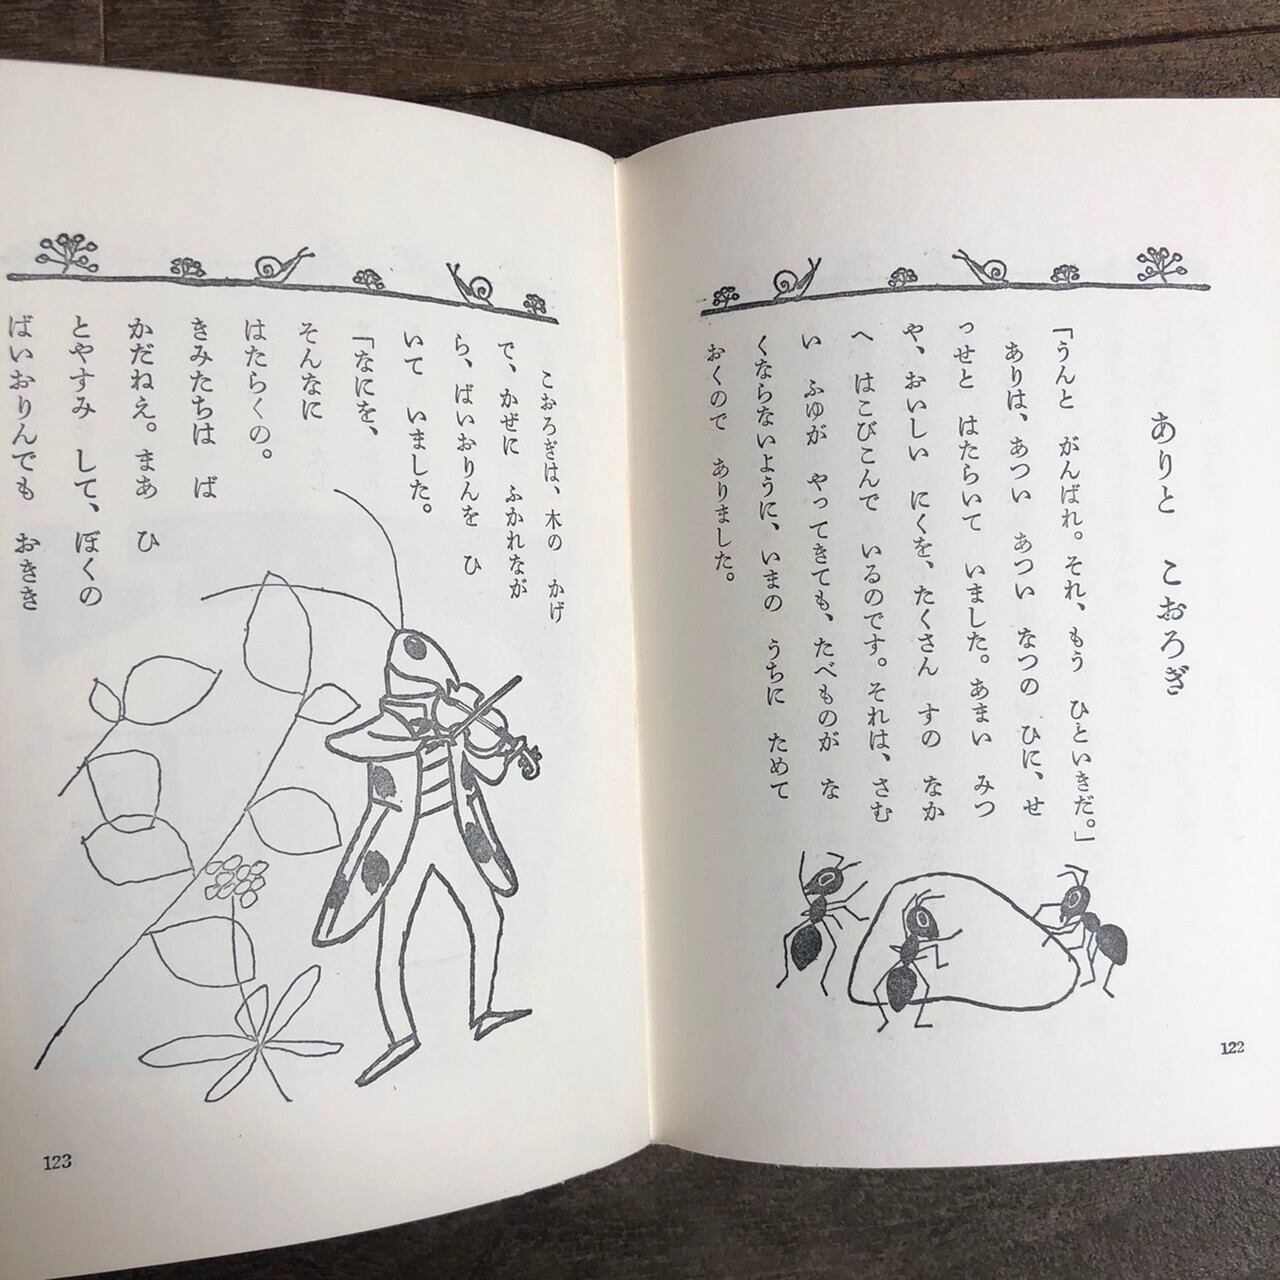 ありと　こおろぎ
「うんと　がんばれ。それ、もう　ひといきだ。」
ありは、あつい　あつい　なつの　ひに、せ
っせと　はたらいて　いました。あまい　みつ
や、おいしい　にくを、たくさん　すの　なか
へ　はこびこんで　いるのです。それは、さむ
い　ふゆが　やってきても、たべものが　な
くならないように、いまの　うちに　ためて
おくので　ありました。
122
こおろぎは、木の　かげ
で、かぜに　ふかれなが
ら、ばいおりんを　ひ
いて　いました。
「なにを、
そんなに
はたらくの。
きみたちは　ば
かだねえ。まあ　ひ
とやすみ　して、ぼくの
ばいおりんでも　おきき
123